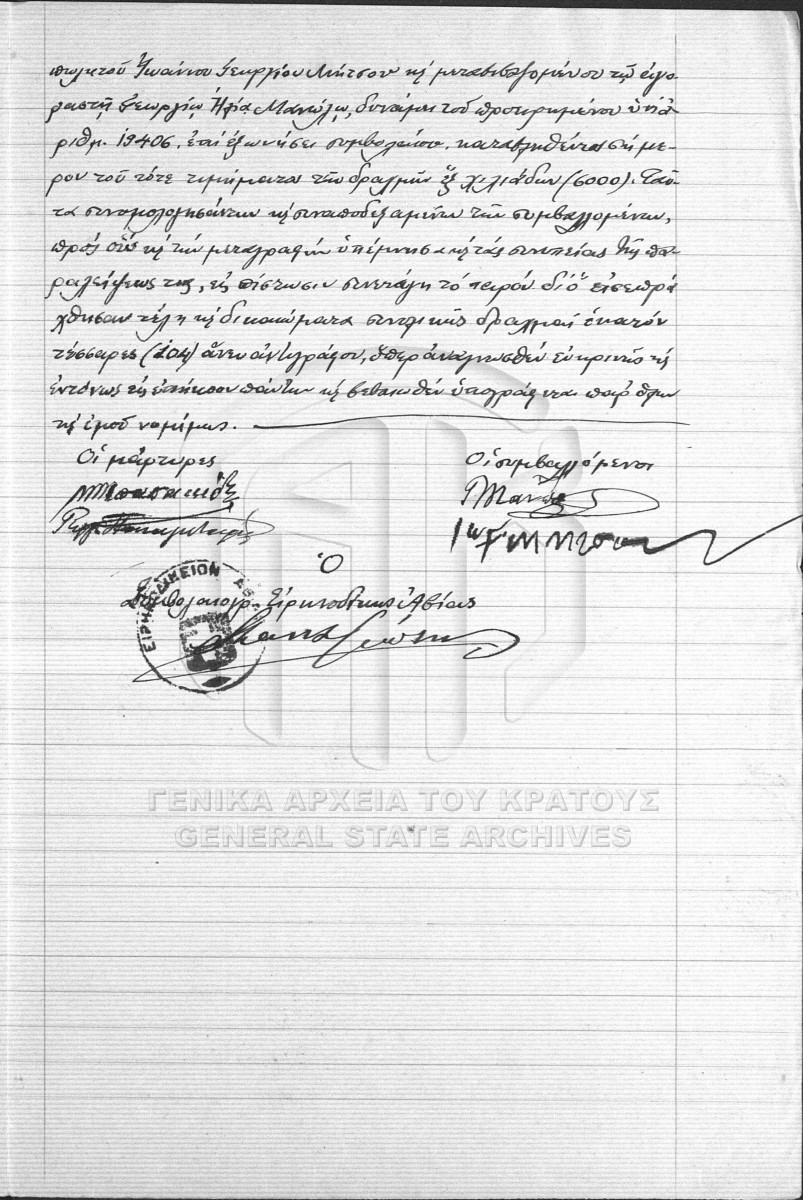 πωλητοῦ Ἰωάννου Γεωργίου Μήτσου κ μεταβιβαζομένου τῷ ἀγο-
ραστῇ Γεωργίῳ Ἠλία Μανώλῃ, δυνάμει τοῦ προειρημένου ὑπ' ἀ-
ριθμ. 19406, ἐπί ἐξωνήσει συμβολαίου, καταβληθέντος σήμε-
ρον τοῦ τότε τιμήματος τῶν δραχμῶν ἕξ χιλιάδων (6000). Ταῦ-
τα συνομολογησάντων κ συναποδεξαμένων τῶν συμβαλλομένων,
πρός οὕς κ τήν μεταγραφήν ὑπέμνησα κ τάς συνεπείας τῆς πα-
ραλείψεως της, εἰς πίστωσιν συνετάγη τό παρόν δι' ὅ εἰσεπρά-
χθησαν τέλη κ δικαιώματα συνολικῶς δραχμαί ἑκατόν
τέσσαρες (104) ἄνευ ἀντιγράφου, ὅπερ ἀναγνωσθέν εὐκρινῶς κ
ἐντόνως εἰς ἐπήκοον πάντων κ βεβαιωθέν ὑπογράφεται παρ' ὅλων
κ ἐμοῦ νομίμως.
Οἱ μάρτυρες
Οἱ συμβαλλόμενοι
Ὁ
Συμβολαιογρ. Εἰρηνοδίκης Ἀβίας
ΕΙΡΗΝΟΔΙΚΕΙΟΝ ΑΒ
ΓΕΝΙΚΑ ΑΡΧΕΙΑ ΤΟΥ ΚΡΑΤΟΥΣ
GENERAL STATE ARCHIVES